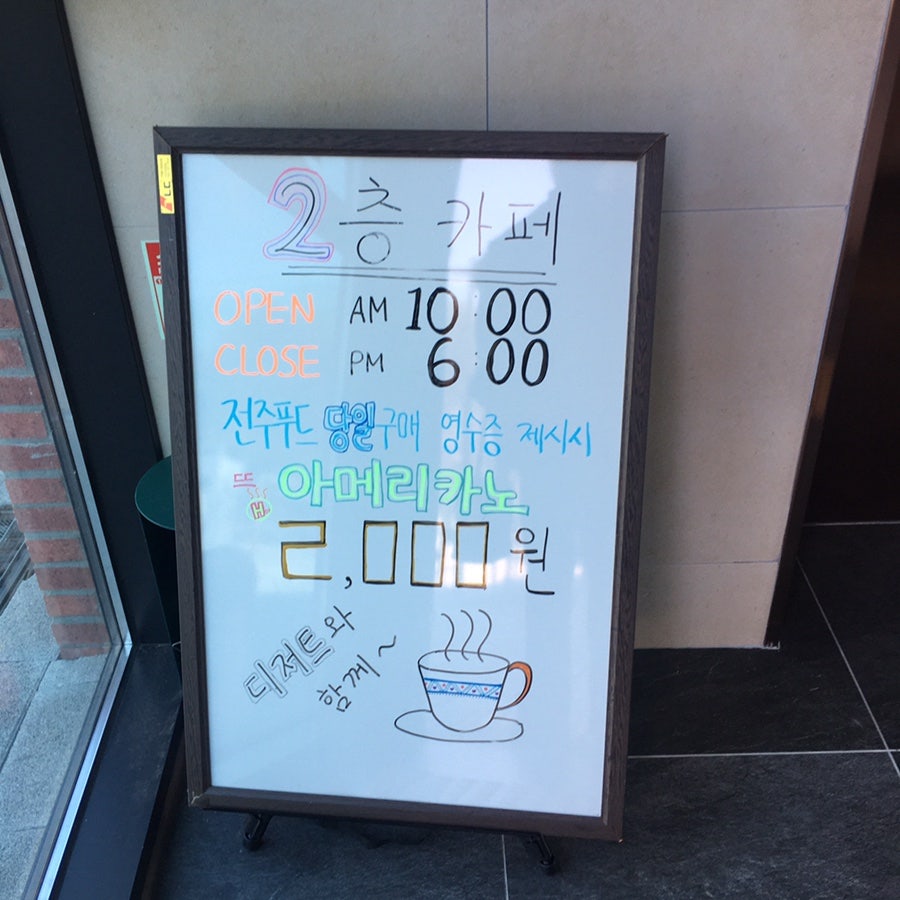 2층 카페
OPEN AM 10:00
CLOSE PM 6:00
전주푸드 당일구매 영수증 제시시
뜨 H 아메리카노
2,000원
디저트와
함께~